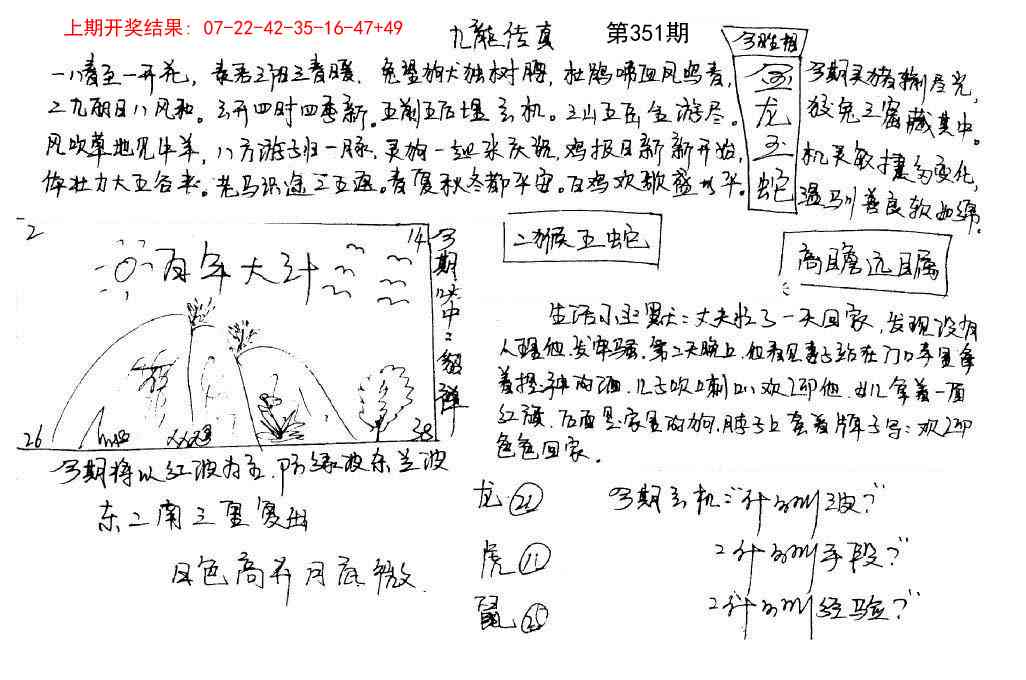 上期开奖结果：07-22-42-35-16-47+49
九龙传真 第351期
今期生相
金龙玉蛇
一八春至一开花，春君三阳三春暖，兔望狗犬独树腾，杜鹃啼血风鸣春，
二九朝日八风和。玄开四时四季新。五前五后埋玄机。三山五岳全游尽。
风吹草地见牛羊，八方游子归一脉，灵狗一起来庆祝，鸡报日新新开始，
体壮力大五谷来。老马识途三五返。春夏秋冬都平安。百鸡欢歌盛太平。
今期灵猪捌尽光，
狡兔三窟藏其中。
机灵敏捷多变化，
温驯善良软如绵。
二猴五蛇
高瞻远瞩
2 14
百年大计
26 38
今期其中二组祥
今期将以红波为主，防绿波杀兰波
东二南三里寻出
日色高升月底微
生活小幽默：丈夫忙了一天回家，发现没有
人理他，发牢骚，第二天晚上，他看见妻子站在门口手里拿
着授神的酒，儿子吹喇叭欢迎他，女儿拿着一面
红旗，后面是家里的狗，脖子上套着牌子写：欢迎
色色回家。
龙 22
虎 11
鼠 25
今期玄机："什么叫波？"
"什么叫手段？"
"什么叫经验？"